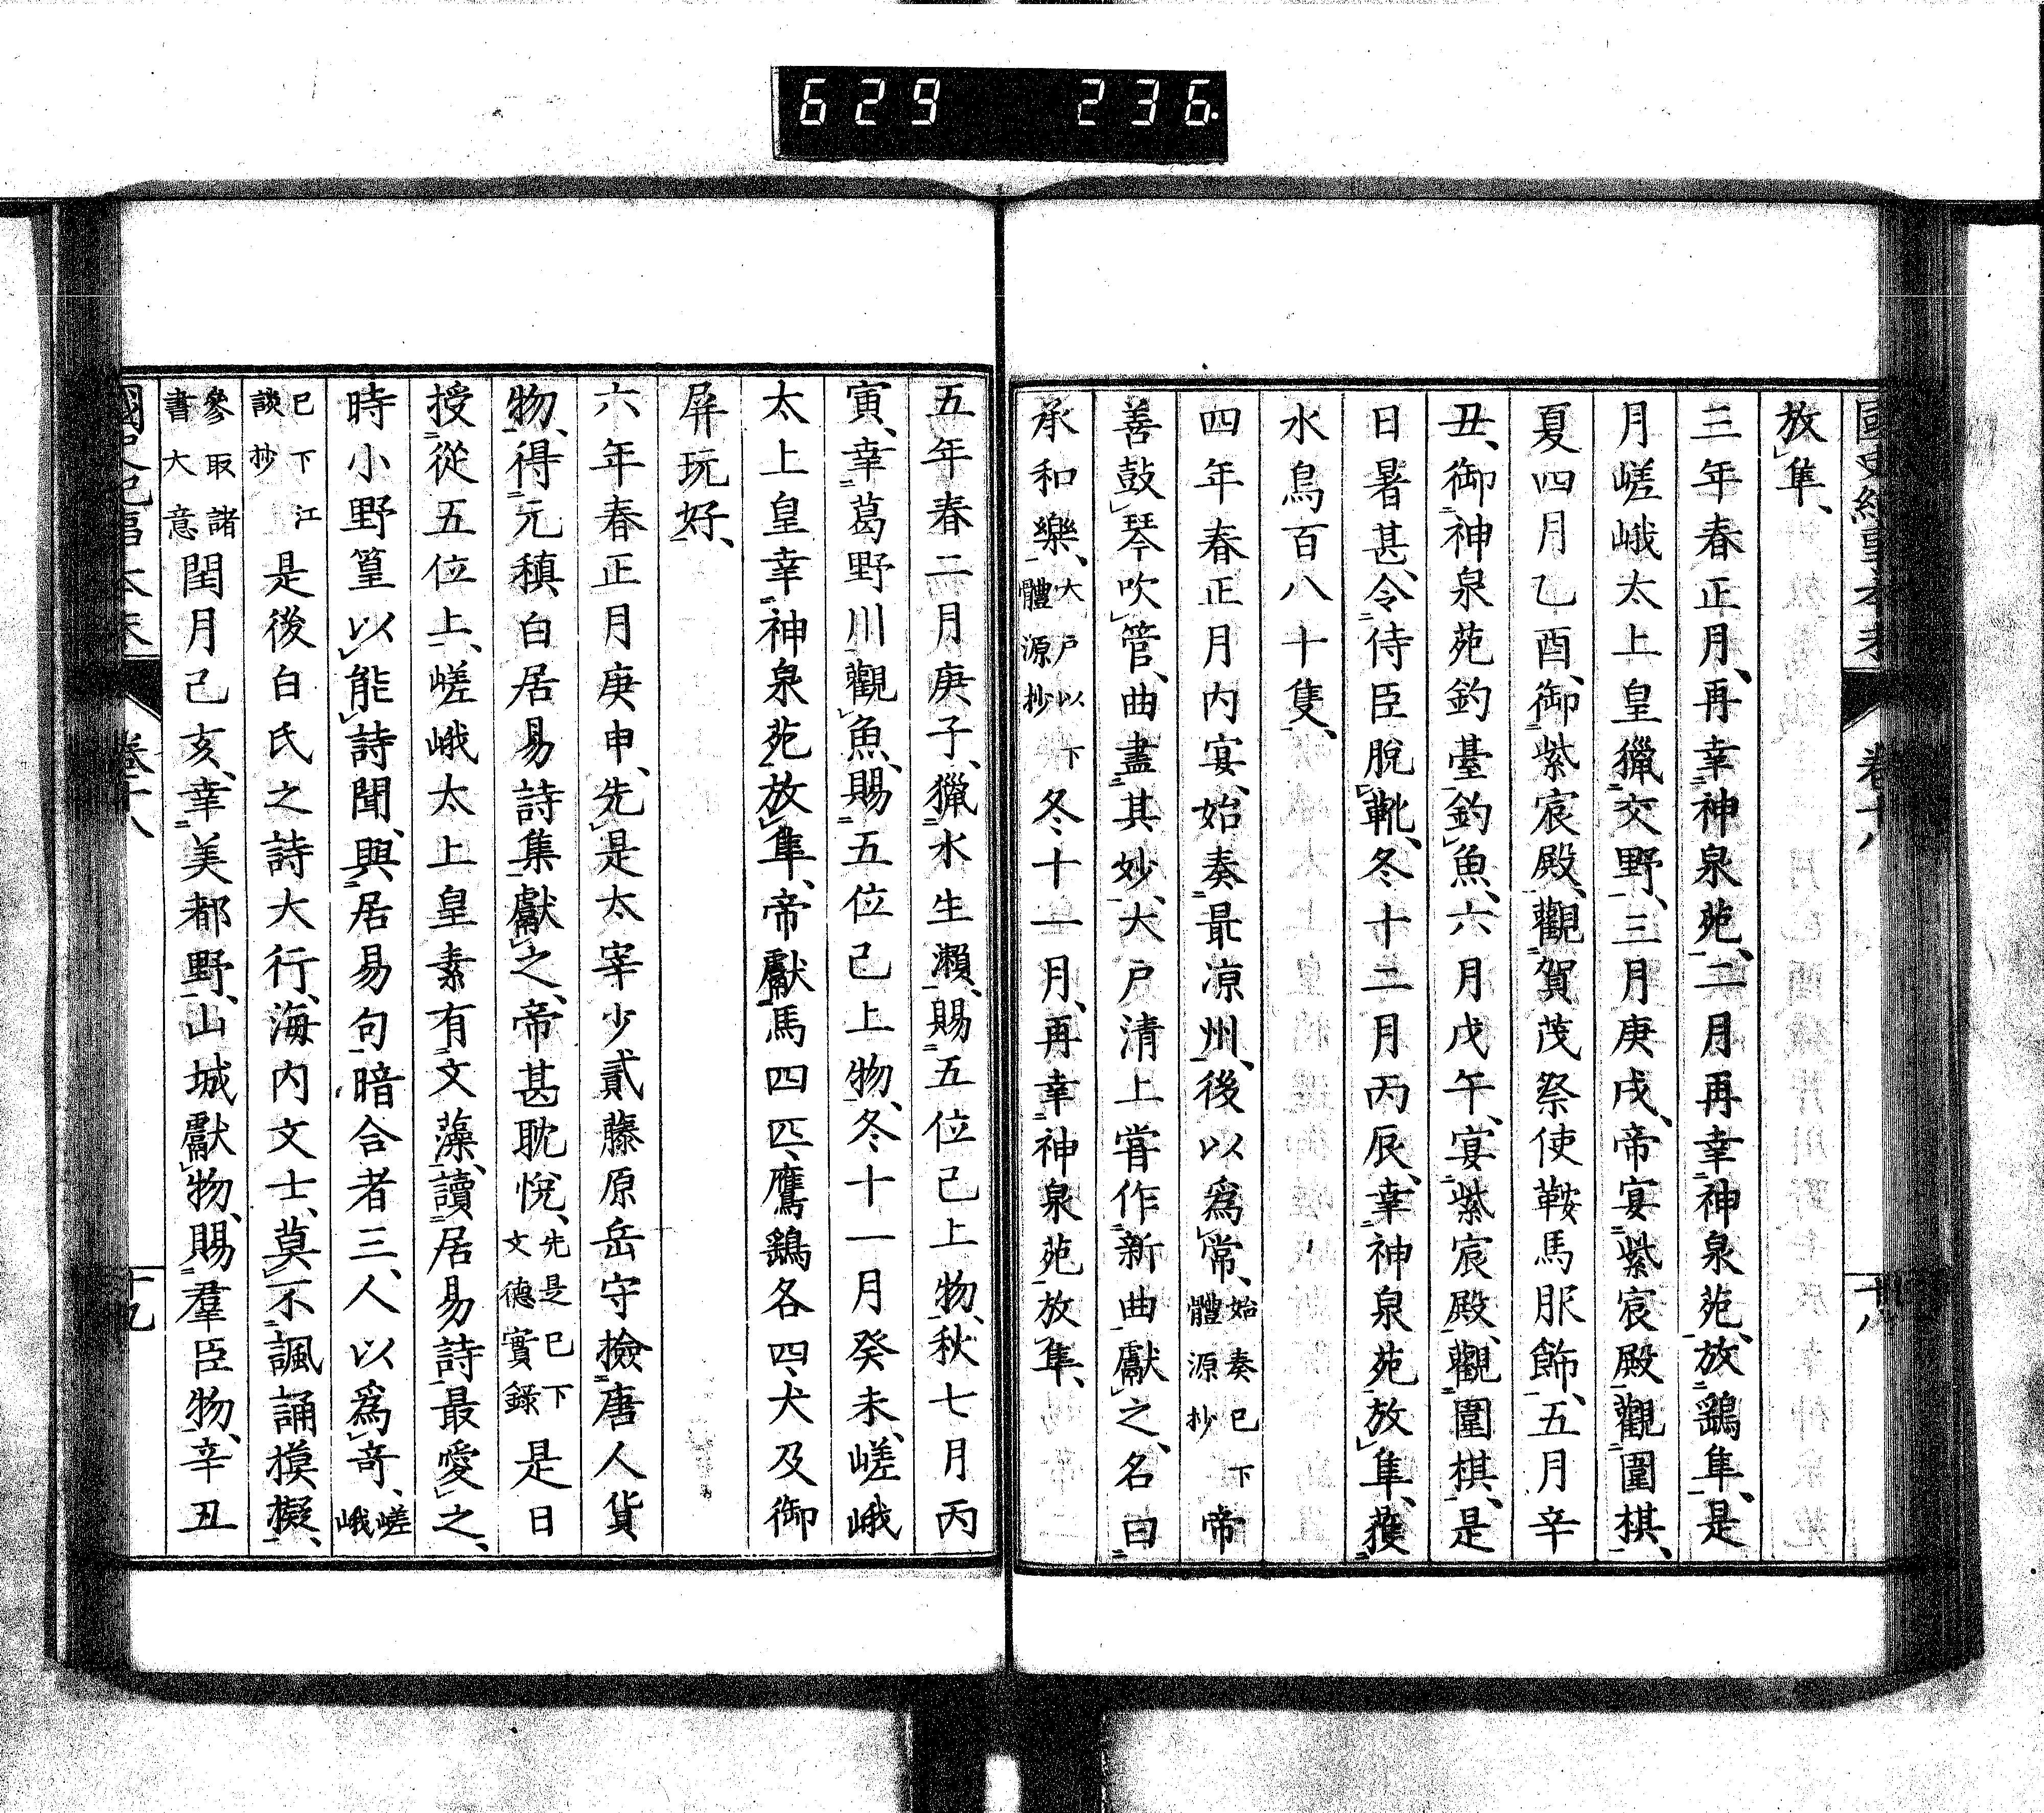 629 236
放隼、
三年春正月、再幸神泉苑、二月再幸神泉苑、放鷂隼、是
月嵯峨太上皇獵交野、三月庚戌、帝宴紫宸殿觀圍棋、
夏四月乙酉、御紫宸殿、觀賀茂祭使鞍馬服飾、五月辛
丑、御神泉苑釣臺釣魚、六月戊午、宴紫宸殿、觀圍棋、是
日暑甚、令侍臣脫靴、冬十二月丙辰、幸神泉苑放隼、獲
水鳥百八十隻、
四年春正月內宴、始奏最凉州、後以爲常、始奏已下體源抄帝
善鼓琴吹管、曲盡其妙、大戶清上嘗作新曲獻之、名曰
承和樂、大戶以下體源抄冬十一月、再幸神泉苑放隼、
卷十八
十八
五年春二月庚子、獵水生瀨、賜五位已上物、秋七月丙
寅、幸葛野川觀魚、賜五位已上物、冬十一月癸未、嵯峨
太上皇幸神泉苑放隼、帝獻馬四匹、鷹鷂各四、犬及御
屏玩好、
六年春正月庚申、先是太宰少貳藤原岳守檢唐人貨
物、得元稹白居易詩集獻之、帝甚耽悅、先是已下文德實錄是日
授從五位上、嵯峨太上皇素有文藻、讀居易詩最愛之、
時小野篁以能詩聞、與居易句暗合者三、人以爲奇、嵯峨
已下江談抄是後白氏之詩大行、海內文士、莫不諷誦摸擬、
參取諸書大意閏月己亥、幸美都野、山城獻物、賜羣臣物、辛丑
卷十八
十九